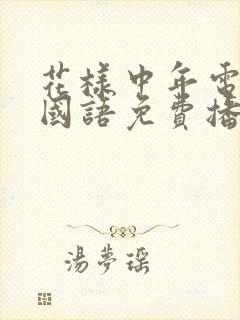 花樣中年電
國語免費播
湯夢瑶